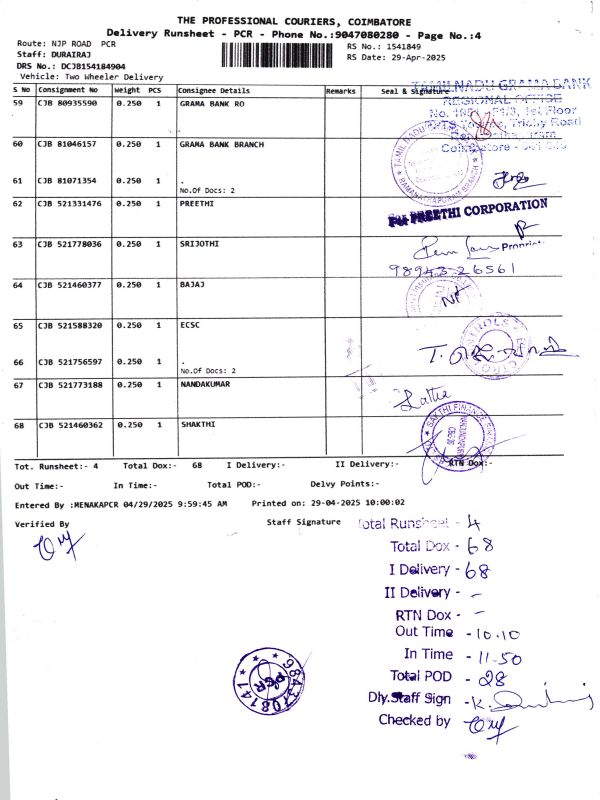 THE PROFESSIONAL COURIERS, COIMBATORE
Delivery Runsheet - PCR - Phone No.:9047080280 - Page No.:4
Route: NJP ROAD PCR
RS No.: 1541849
Staff: DURAIRAJ
RS Date: 29-Apr-2025
DRS No.: DCJB154184904
Vehicle: Two Wheeler Delivery
S No Consignment No Weight PCS Consignee Details Remarks Seal & Signature
TAMILNADU GRAMA BANK
59 CJB 80935590 0.250 1 GRAMA BANK RO
REGIONAL OFFICE
1st Floor
Trichy Road
60 CJB 81046157 0.250 1 GRAMA BANK BRANCH
Coimbatore
RAMANATHAPURAM BRANCH
61 CJB 81071354 0.250 1 .
No.Of Docs: 2
62 CJB 521331476 0.250 1 PREETHI
For PREETHI CORPORATION
Proprietor
63 CJB 521778036 0.250 1 SRIJOTHI
98943 26561
64 CJB 521460377 0.250 1 BAJAJ
65 CJB 521588320 0.250 1 ECSC
66 CJB 521756597 0.250 1 .
No.Of Docs: 2
67 CJB 521773188 0.250 1 NANDAKUMAR
Latha
68 CJB 521460362 0.250 1 SHAKTHI
SAKTHI FINANCE
Tot. Runsheet:- 4 Total Dox:- 68 I Delivery:- II Delivery:- RTN Dox:-
Out Time:- In Time:- Total POD:- Delvy Points:-
Entered By :MENAKAPCR 04/29/2025 9:59:45 AM Printed on: 29-04-2025 10:00:02
Verified By Staff Signature
Total Runsheet - 4
Total Dox - 68
I Delivery - 68
II Delivery - -
RTN Dox - -
Out Time - 10.10
In Time - 11.50
Total POD - 28
Dly.Staff Sign -
Checked by
9843708141
PCR